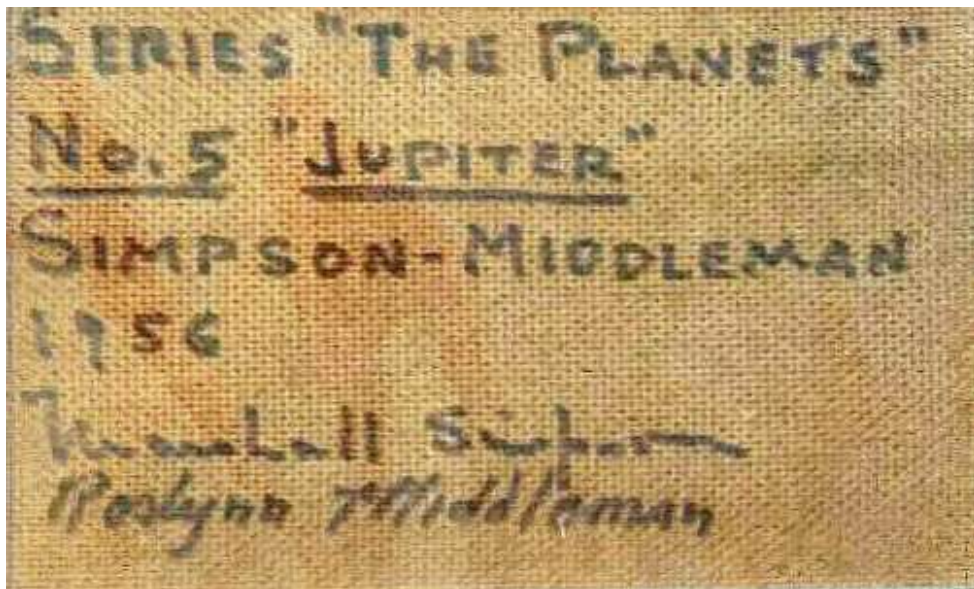 SERIES "THE PLANETS"
No. 5 "JUPITER"
SIMPSON-MIDDLEMAN
1956
Marshall Simpson
Roslynn Middleman